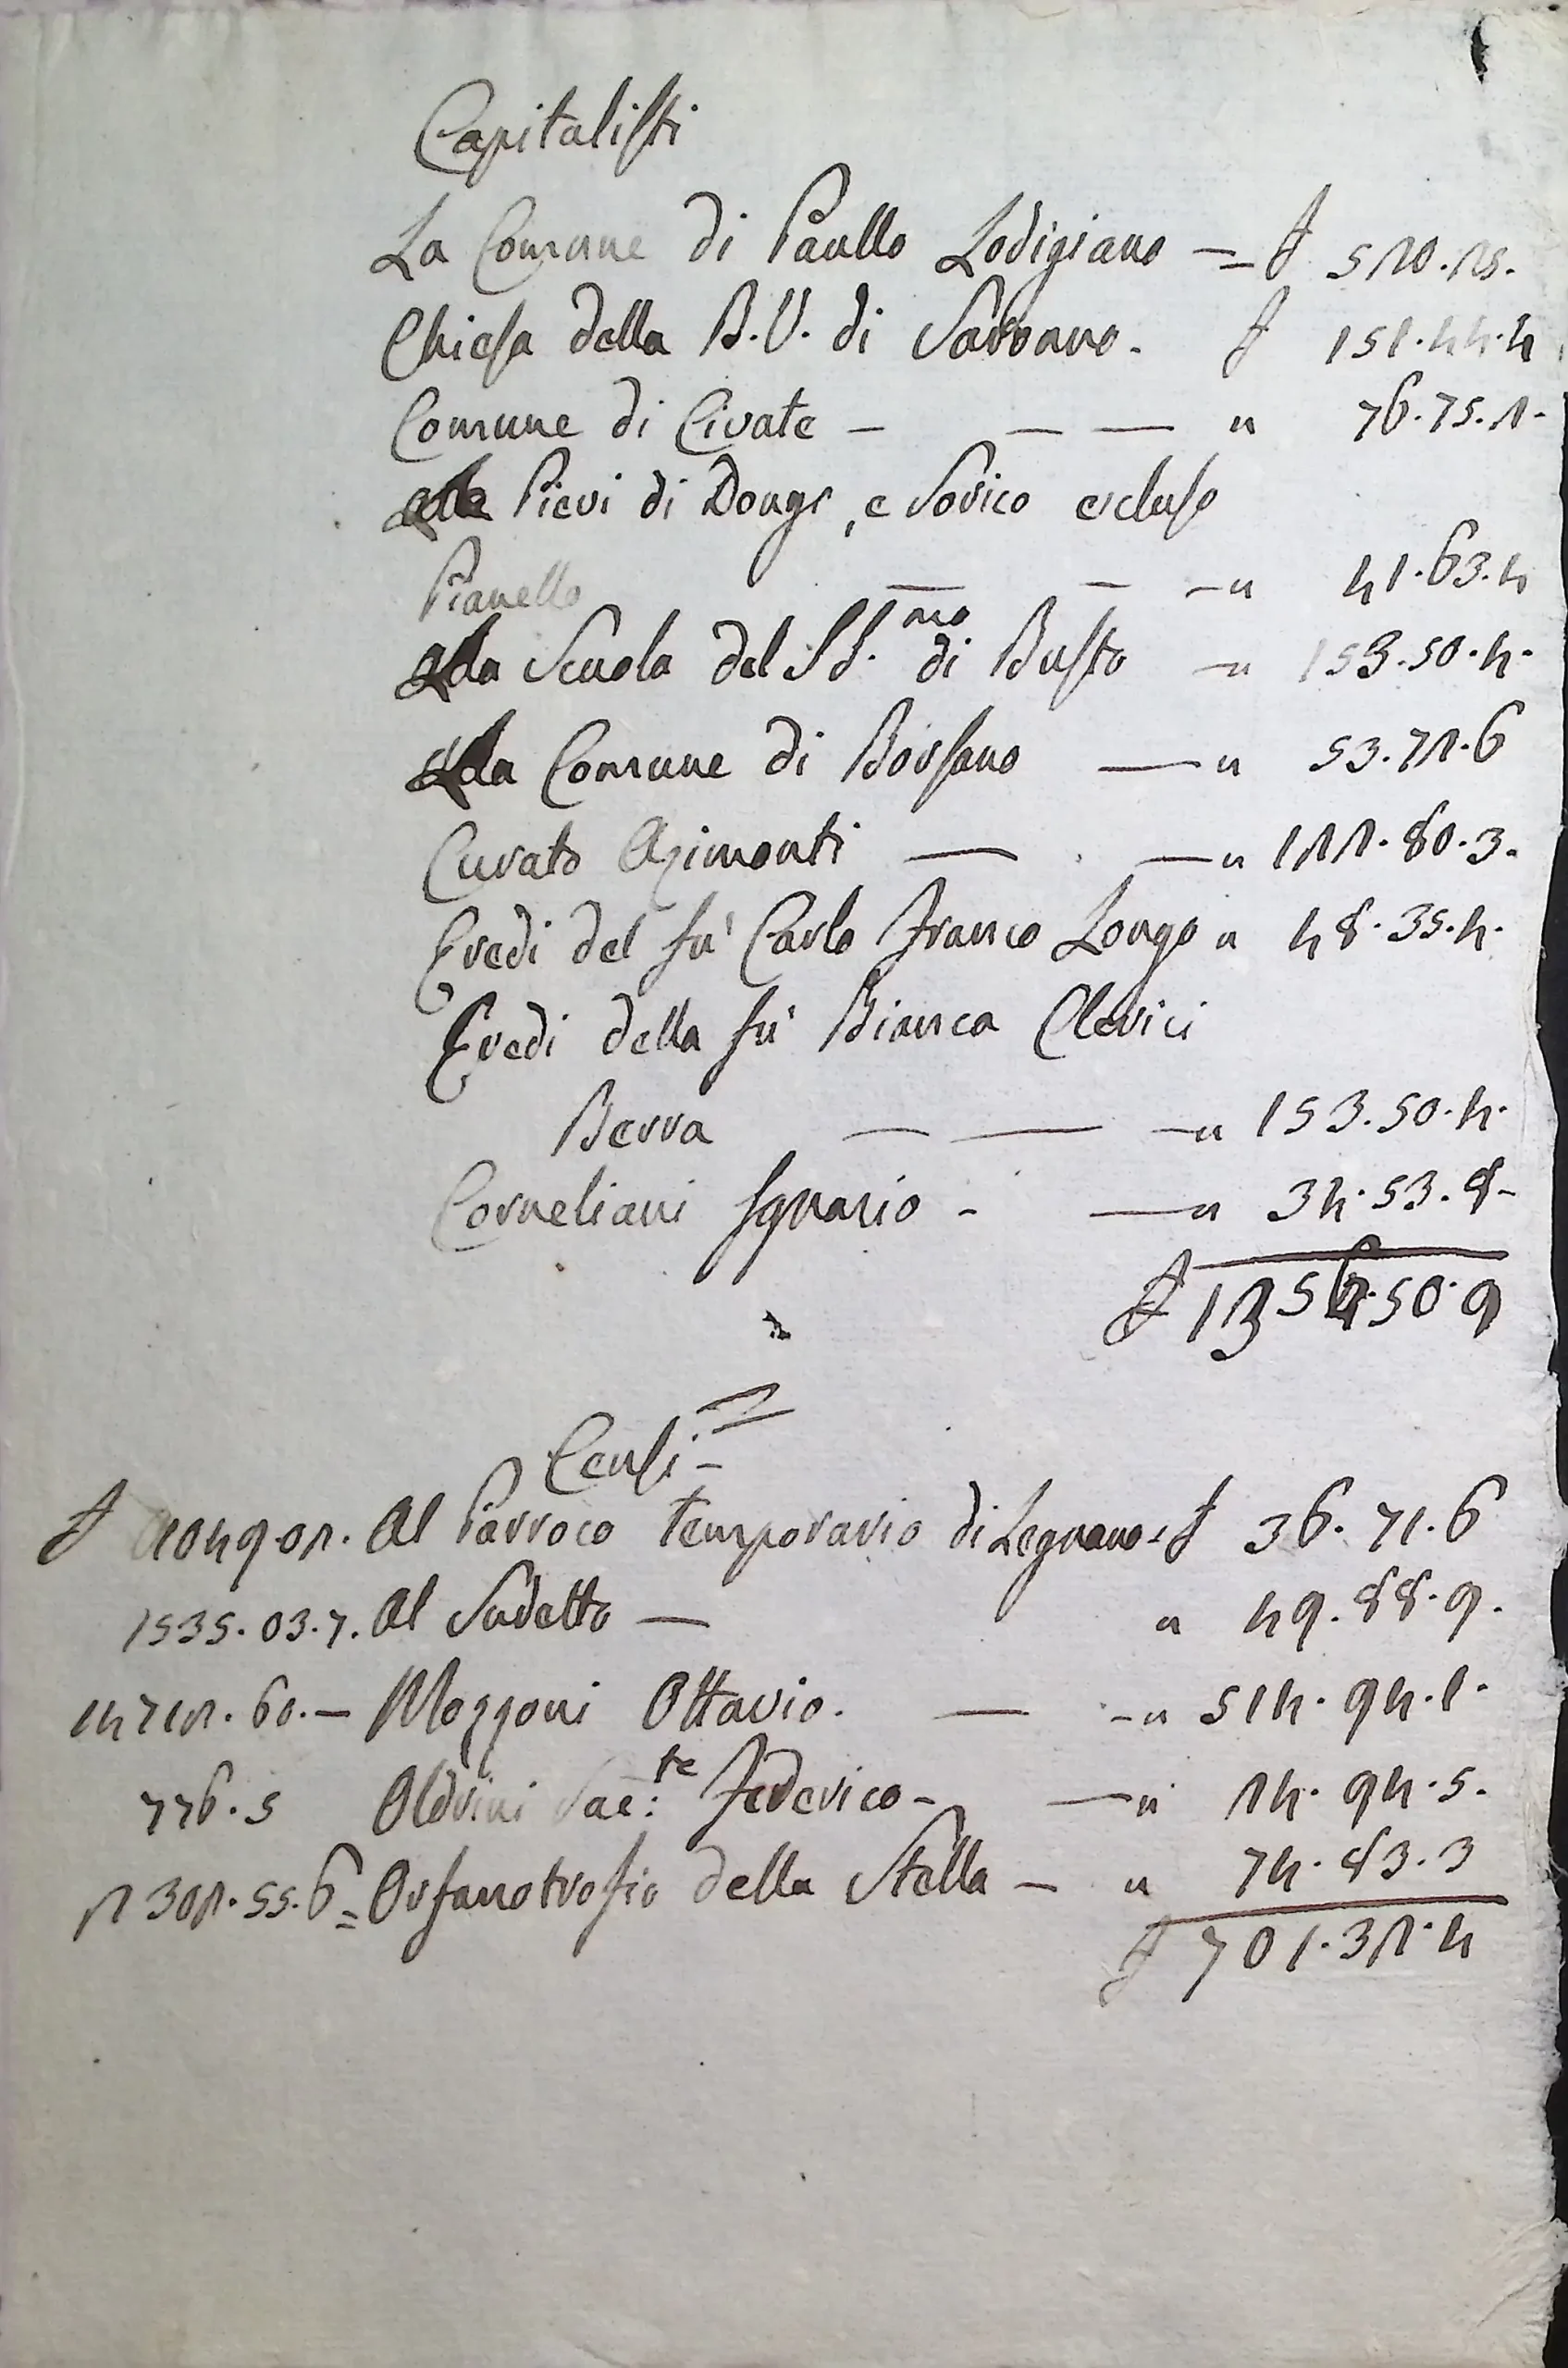 Capitalisti
La Comune di Paullo Lodigiano -= £ 520.25.
Chiesa della B.V. di Saronno. £ 151.44.4
Comune di Civate - — — " 76.75.2-
Pievi di Dongo, e Sorico escluso
Pianello — - -" 41.63.4
La Scuola del SS.mo di Busto -" 153.50.4.
La Comune di Borsano —" 53.72.6
Curato Azimonti — —" 122.80.3.
Eredi del fu' Carlo Franco Longo " 48.35.4.
Eredi della fu' Bianca Clerici
Berra — — -" 153.50.4.
Corneliani Ignazio - —" 34.53.8-
£ 1356.50.9
Censi-
£ 1049.02. Al Parroco temporario di Legnano £ 36.71.6
1535.03.7. Al Sudetto — " 49.88.9.
14712.60.— Mozzoni Ottavio. — -" 514.94.1.
776.5 Oldrini Sac:te Federico- —" 24.94.5.
2302.55.6= Orfanotrofio della Stella — " 74.83.3
£ 701.32.4